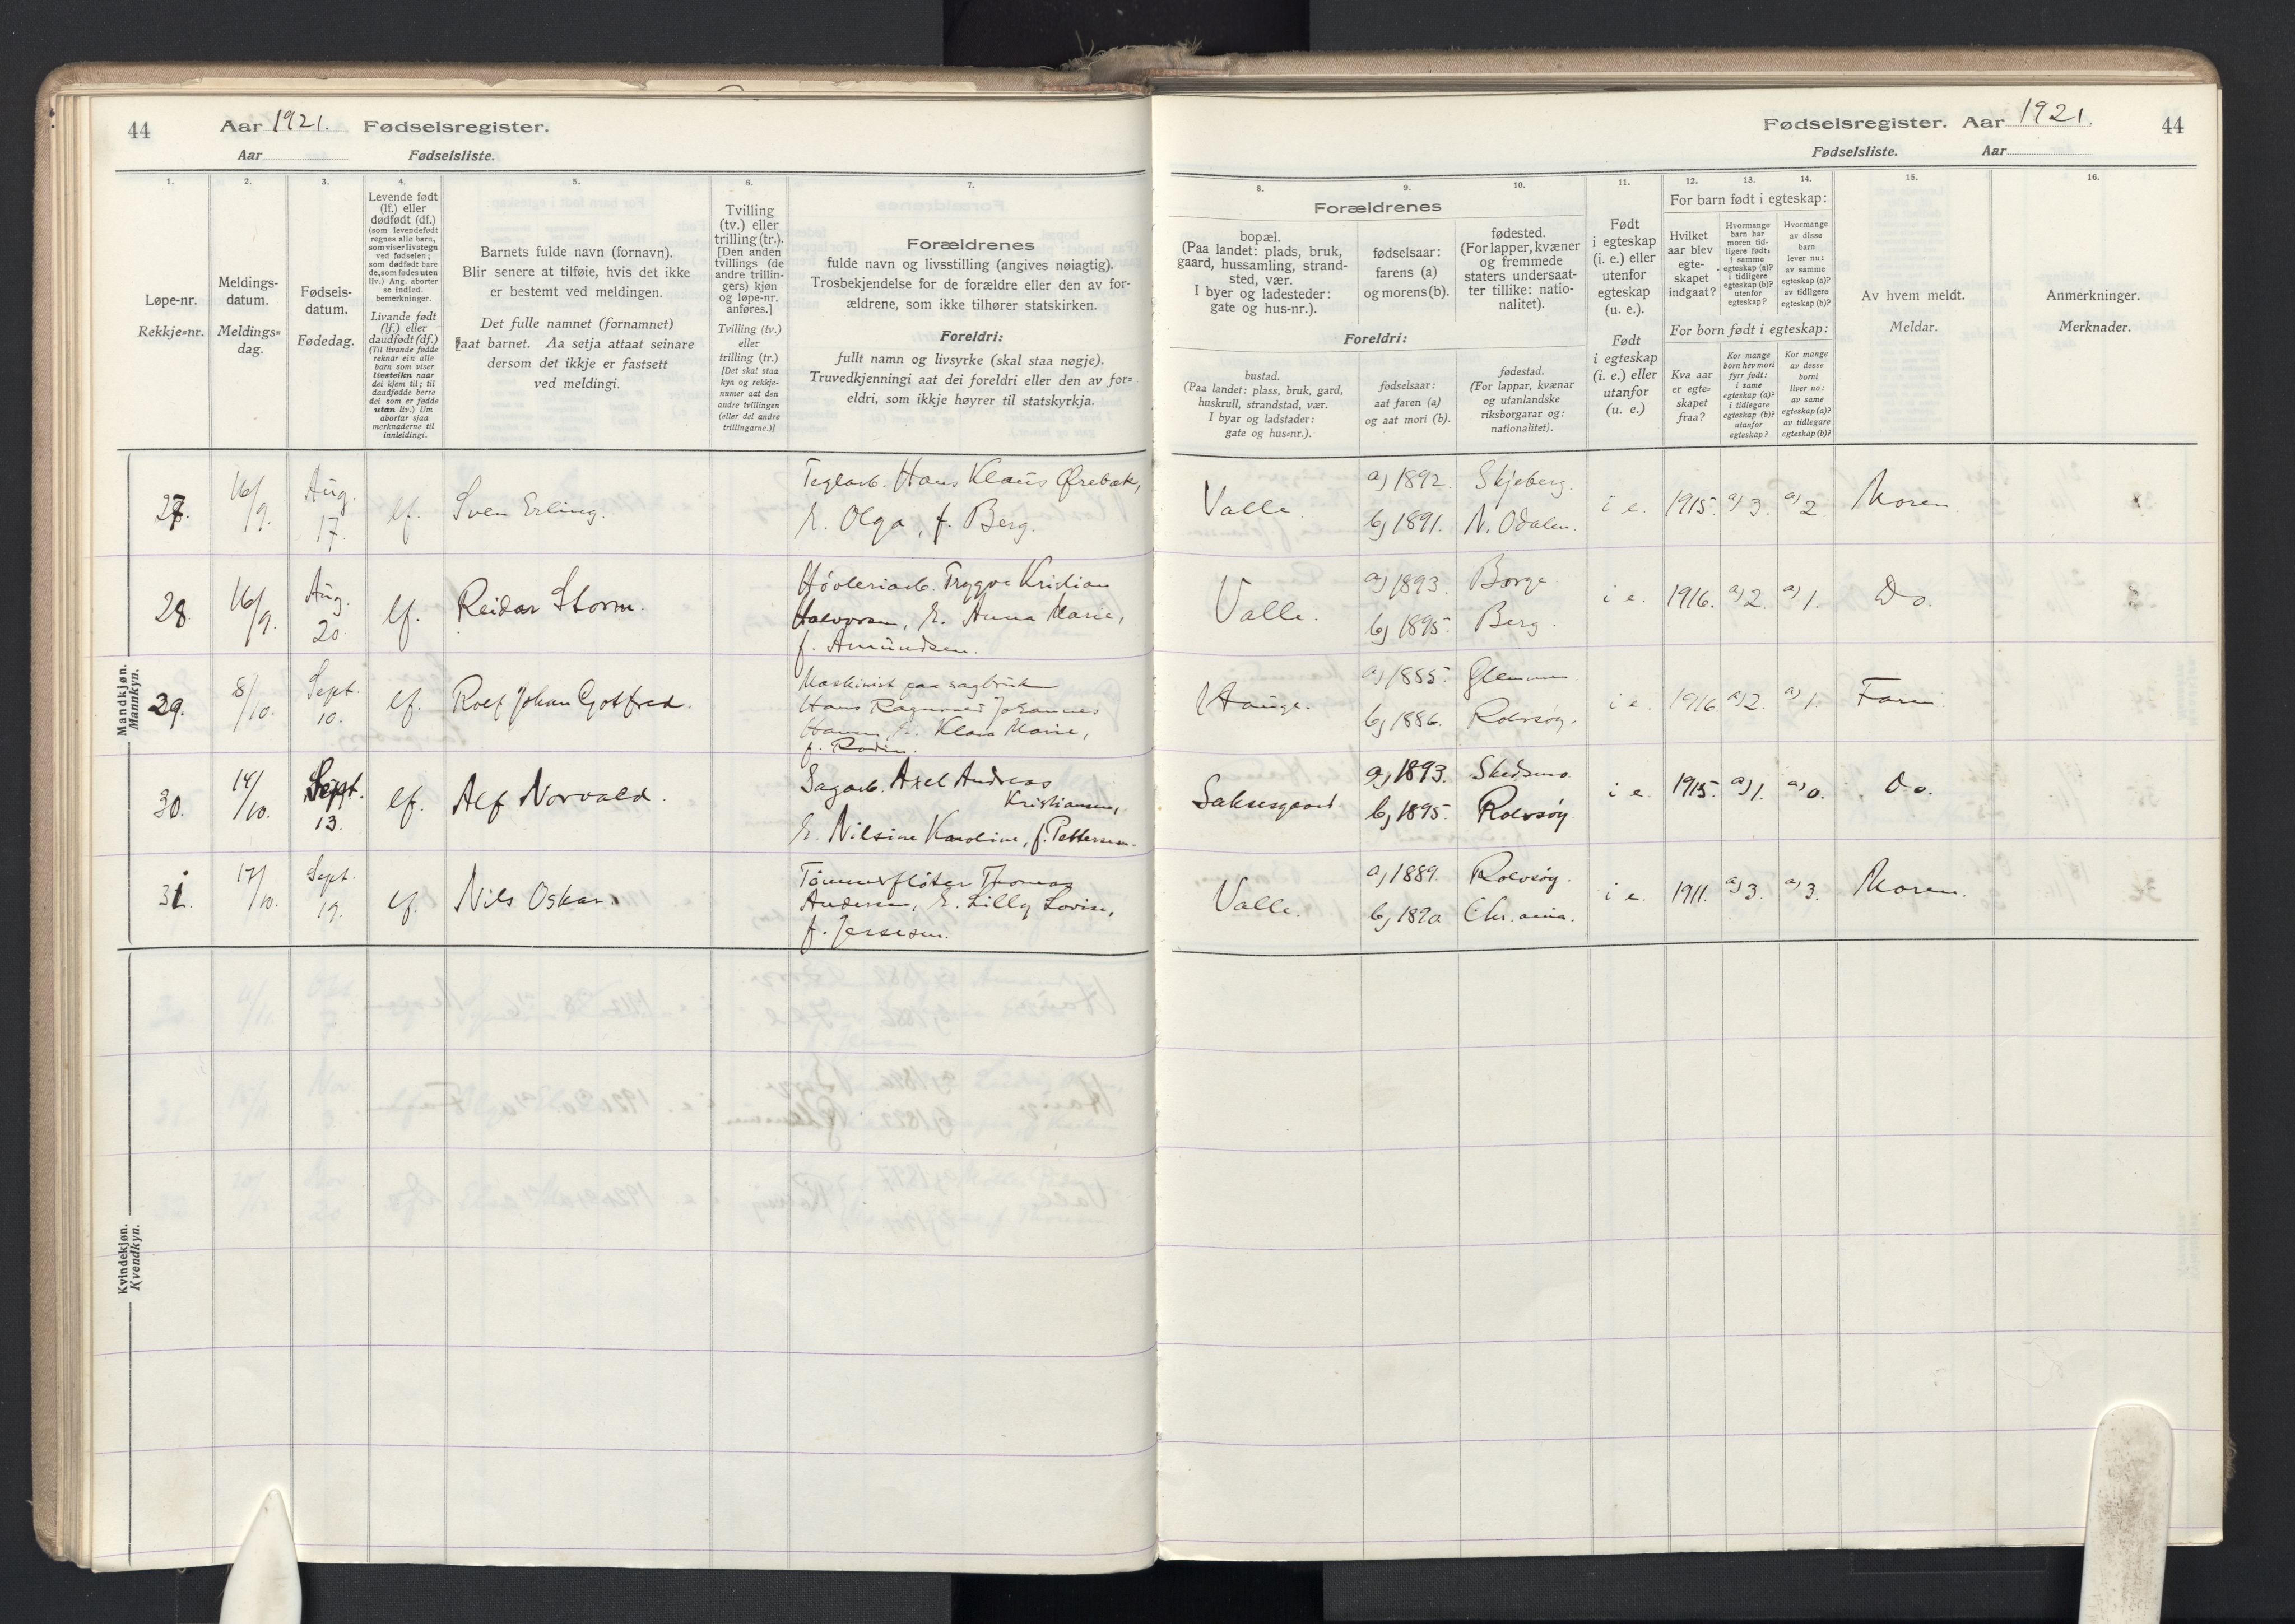 44
Aar 1921. Fødselsregister.
Aar Fødselsliste.
1.
2.
3.
4.
5.
6.
7.
Løpe-nr.
Rekkje=nr.
Meldings-
datum.
Meldings=
dag.
Fødsels-
datum.
Fødedag.
Levende født
(lf.) eller
dødfødt (df.)
(som levendefødt
regnes alle barn,
som viser livstegn
ved fødselen;
som dødfødt bare
de, som fødes uten
liv.) Ang. aborter
se indled.
bemerkninger.
Livande født
(lf.) eller
daudfødt (df.)
(Til livande fødde
reknar ein alle
barn som viser
livsteikn naar
dei kjem til; til
daudfødde berre
dei som er fødde
utan liv.) Um
abortar sjaa
merknaderne til
innleidingi.
Barnets fulde navn (fornavn).
Blir senere at tilføie, hvis det ikke
er bestemt ved meldingen.
Det fulle namnet (fornamnet)
aat barnet. Aa setja attaat seinare
dersom det ikkje er fastsett
ved meldingi.
Tvilling
(tv.) eller
trilling (tr.).
[Den anden
tvillings (de
andre trillin-
gers) kjøn
og løpe-nr.
anføres.]
Tvilling (tv.)
eller
trilling (tr.)
[Det skal staa
kyn og rekkje-
numer aat den
andre tvillingen
(eller dei andre
trillingarne.)]
Forældrenes
fulde navn og livsstilling (angives nøiagtig).
Trosbekjendelse for de forældre eller den av for-
ældrene, som ikke tilhører statskirken.
Foreldri:
fullt namn og livsyrke (skal staa nøgje).
Truvedkjenningi aat dei foreldri eller den av for=
eldri, som ikkje høyrer til statskyrkja.
Mandkjøn.
Mannkyn.
27.
16/9.
Aug.
17.
lf.
Sven Erling.
Teglarb. Hans Klaus Ørebæk,
E. Olga, f. Berg.
28.
16/9.
Aug.
20.
lf.
Reidar Storm.
Høvleriarb. Trygve Kristian
Halvorsen, E. Anna Marie,
f. Amundsen.
29.
8/10.
Sept.
10.
lf.
Rolf Johan Gotfred.
Maskinist paa sagbruk
Hans Ragnvald Johannes
Hansen, E. Klara Marie,
f. Rodin.
30.
14/10.
Sept.
13.
lf.
Alf Norvald.
Sagarb. Axel Andreas
Kristiansen,
E. Nilsine Karoline, f. Pettersen.
31.
17/10.
Sept.
19.
lf.
Nils Oskar.
Tømmerfløter Thomas
Andersen, E. Lilly Lovise,
f. Jensen.
Kvindekjøn.
Kvendkyn.
Fødselsregister. Aar 1921.
44
Fødselsliste. Aar
8.
9.
10.
11.
12.
13.
14.
15.
16.
Forældrenes
bopæl.
(Paa landet: plads, bruk,
gaard, hussamling, strand-
sted, vær.
I byer og ladesteder:
gate og hus-nr.).
fødselsaar:
farens (a)
og morens (b).
fødested.
(For lapper, kvæner
og fremmede
staters undersaat-
ter tillike: natio-
nalitet).
Foreldri:
bustad.
(Paa landet: plass, bruk, gard,
huskrull, strandstad, vær.
I byar og ladstader:
gate og hus=nr.).
fødselsaar:
aat faren (a)
og aat mori (b).
fødestad.
(For lappar, kvænar
og utanlandske
riksborgarar og:
nationalitet).
Født
i egteskap
(i. e.) eller
utenfor
egteskap
(u. e.).
Født
i egteskap
(i. e.) eller
utanfor
(u. e.)
For barn født i egteskap:
Hvilket
aar blev
egte-
skapet
indgaat?
Hvormange
barn har
moren tid-
ligere født,
i samme
egteskap (a)?
i tidligere
egteskap (b)?
utenfor
egteskap?
Hvormange
av disse
barn
lever nu:
av samme
egteskap (a)?
av tidligere
egteskap (b)?
For born født i egteskap:
Kva aar
er egte=
skapet
fraa?
Kor mange
born hev mori
fyrr født:
i same
egteskap (a)?
i tidlegare
egteskap (b)?
utanfor
egteskap?
Kor mange
av desse
borni
liver no:
av same
egteskap (a)?
av tidlegare
egteskap (b)?
Av hvem meldt.
Meldar.
Anmerkninger.
Merknader.
Valle.
a) 1892.
b) 1891.
Skjeberg.
N. Odalen.
i e.
1915.
a) 3.
a) 2.
Moren.
Valle.
a) 1893.
b) 1895.
Borge
Berg.
i e.
1916.
a) 2.
a) 1.
Do.
Hauge.
a) 1885.
b) 1886.
Glemmen.
Rolvsøy.
i e.
1916.
a) 2.
a) 1.
Faren.
Saksegaard
a) 1893.
b) 1895.
Skedsmo.
Rolvsøy
i e.
1915.
a) 1.
a) 0.
Do.
Valle.
a) 1889.
b) 1890
Rolvsøy.
Chr.ania.
i e.
1911.
a) 3.
a) 3.
Moren.